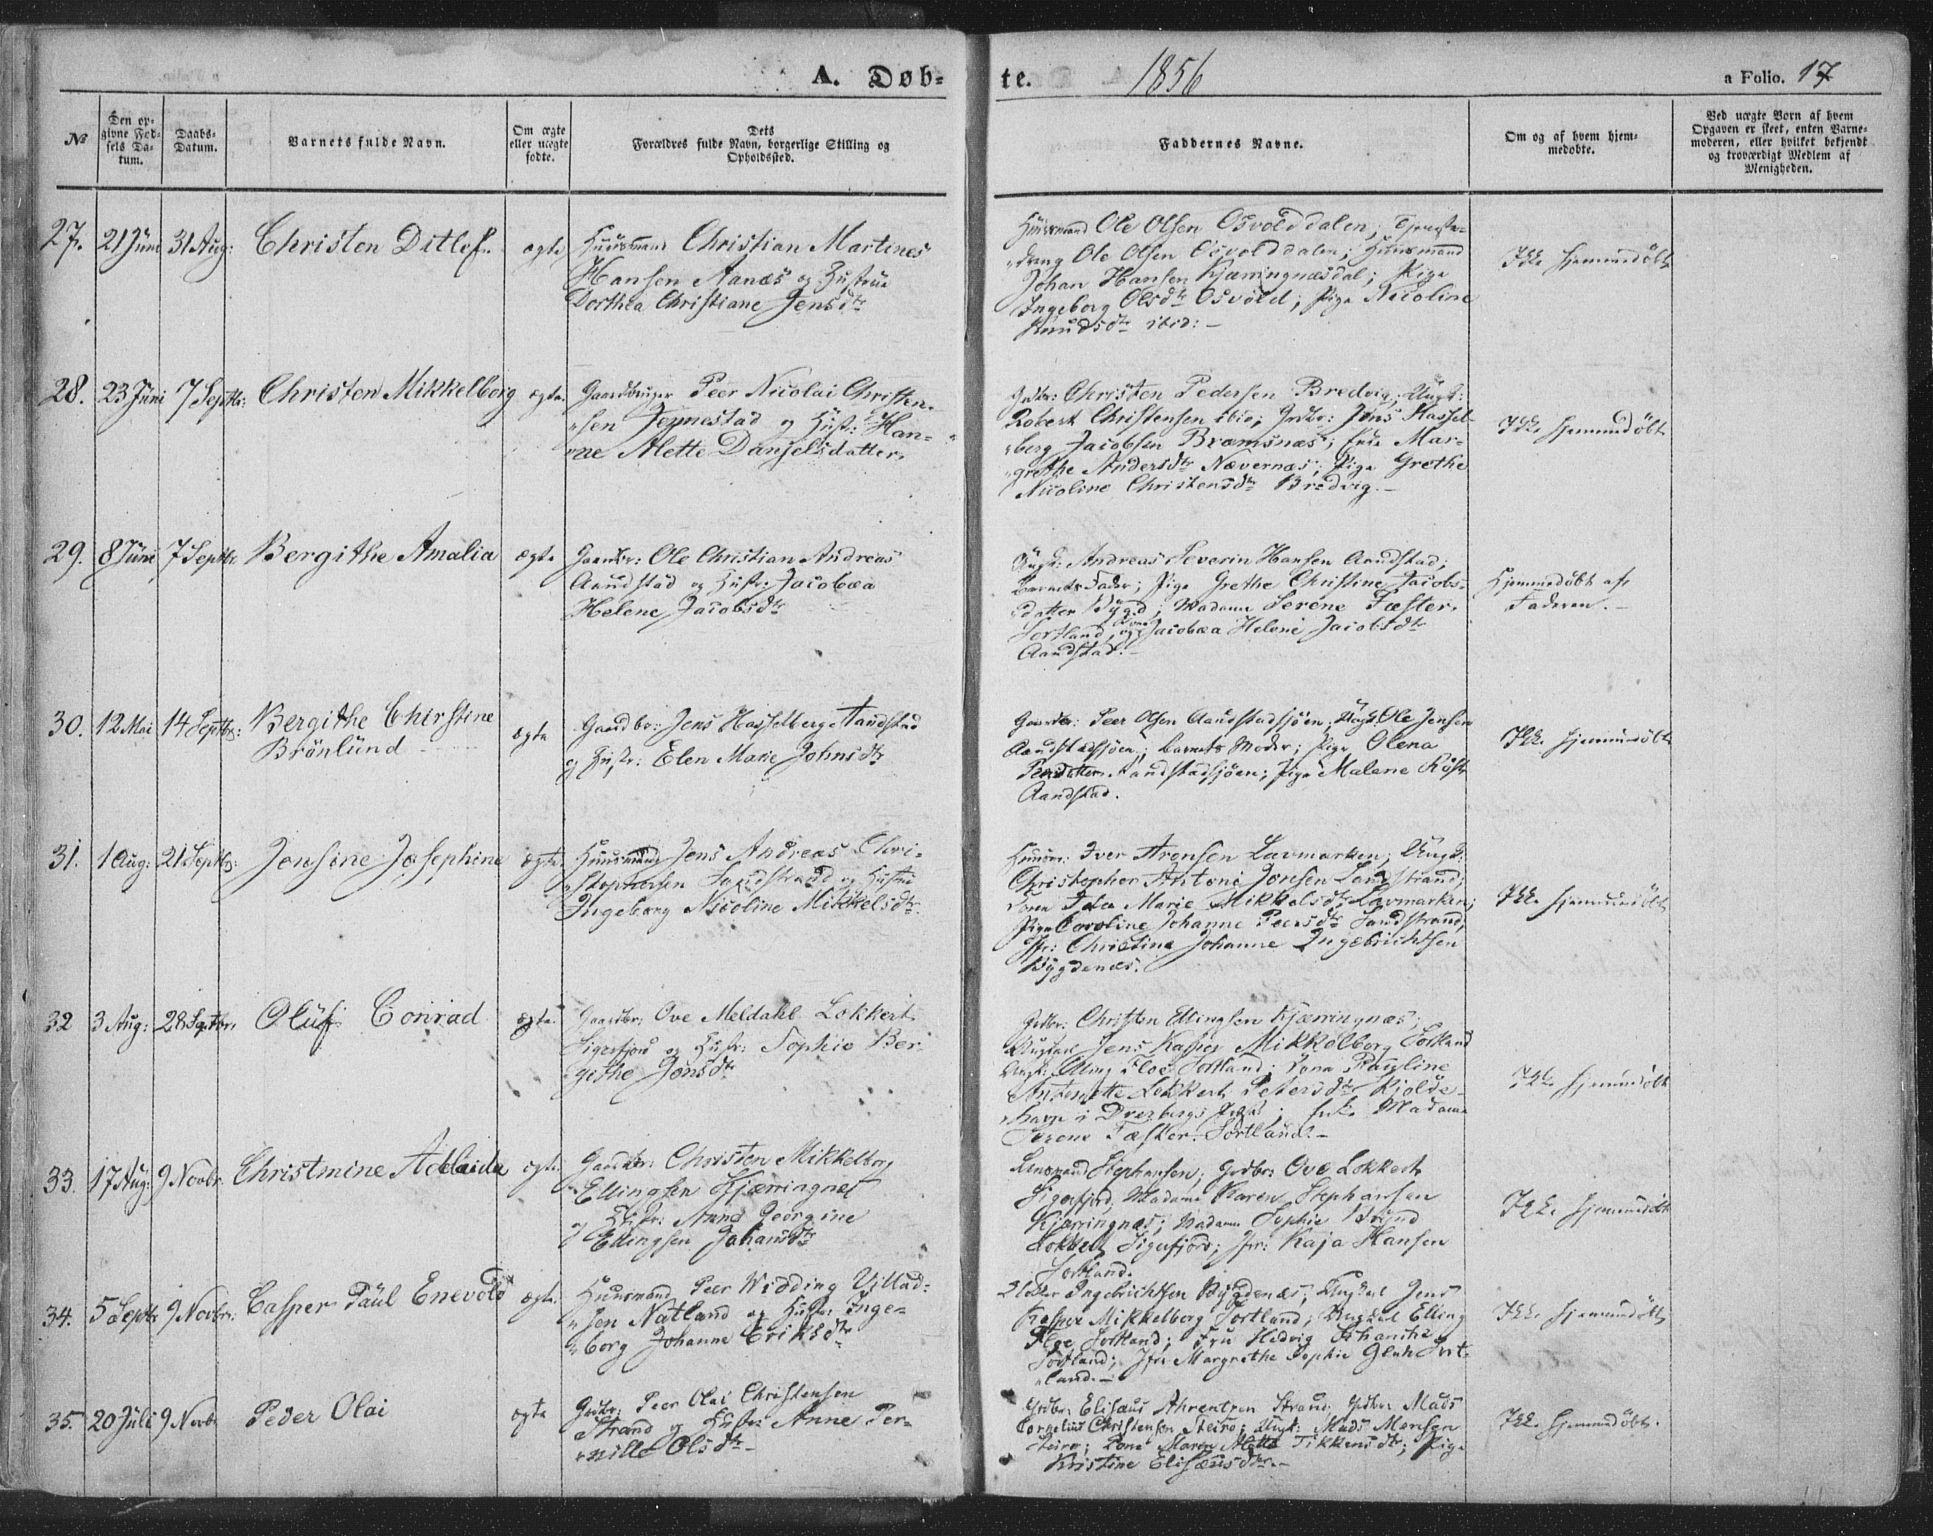 A. Døb-
te.
1856
a Folio. 17
No
Den opgivne Fødsels Datum.
Daabs-Datum.
Barnets fulde Navn.
Om ægte eller uægte fødte.
Dets Forældres fulde Navn, borgerlige Stilling og Opholdssted.
Faddernes Navne.
Om og af hvem hjemmedøbte.
Ved uægte Børn af hvem Opgaven er skeet, enten Barnemoderen, eller hvilket bekjendt og troværdigt Medlem af Menigheden.
27. 21 Juni 31 Aug: Christen Ditlef ægte
Huusmand Christian Martines
Hansen Aanæs og Hustrue
Dorthea Christiane Jensdtr
Huusmand Ole Olsen Osvolddalen; Tjeneste-
dreng Ole Olsen Osvolddalen; Huusmand
Johan Hansen Kjærringnæsdal; Pige
Ingeborg Olsdtr Osvold; Pige Nicoline
Knudsdtr ibid: -
Ikke hjemmedøbt
28. 23 Juni 7 Septbr: Christen Mikkelborg ægte
Gaardbruger Peer Nicolai Christen-
sen Jennestad og Hust: Han-
ne Mette Danjelsdatter.
Grdbr: Christen Pedersen Bredvig; Ungk:
Robert Christensen ibid; Grdbr: Jens Hassel-
berg Jacobsen Bremsnæs; Enke Mar-
grethe Andersdtr Nævernæs; Pige Grethe
Nicoline Christensdtr Bredvig. -
Ikke hjemmedøbt
29. 8 Juni 7 Septbr Bergithe Amalia ægte
Gaardbr: Ole Christian Andreas
Aandstad og Hustr: Jacobæa
Helene Jacobsdtr
Ungk: Andreas Severin Hansen Aandstad;
Barnets Fader; Pige Grethe Christine Jacobs-
datter Bygd; Madame Serene Fæster
Sortland, og Kone Jacobæa Helene Jacobsdtr
Aandstad. -
Hjemmedøbt af
Faderen. -
30. 12 Mai 14 Septbr: Bergithe Chirstine
Brönlund
ægte
Gaardbr: Jens Hasselberg Aandstad
og Hustr: Elen Marie Johnsdtr
Gaardbr: Peer Olsen Aandstadsjöen; Ungk: Ole Jensen
Aandstadsjöen; Barnets Moder; Pige Olena
Peersdatter Aandstadsjöen; Pige Malene
Aandstad.
Ikke hjemmedøbt
31. 1 Aug: 21 Septbr: Jensine Josephine ægte
Huusmand Jens Andreas Chri-
stophersen Sandstrand og Hustru
Ingeborg Nicoline Mikkelsdtr.
Iver Arensen Lavmarken; Ungk:
Christopher Antoni Jensen Sandstrand;
Kone Ida Marie Mikkelsdtr Lavmarken;
Pige Caroline Johanne Peersdtr Sandstrand;
Jfr: Christine Johanne Ingebrichtsen
Bygdenæs.
Ikke hjemmedøbt
32 3 Aug: 28 Septbr. Oluf Conrad ægte
Gaardbr: Ove Meldahl Lokkert
Sigerfjord og Hustr: Sophie Ber-
githe Jensdtr
Grdbr: Christen Ellingsen Kjærringnæs;
Ungkarl Jens Kasper Mikkelborg Sortland
Ungk: Elling Floe Sortland; Kone Pauline
Antonette Lokkert Petersdtr Kjolde-
havn i Dverbergs; Enke Madame
Serene Fæster Sortland. -
Ikke hjemmedøbt
33. 17 Aug: 9 Novbr. Christmine Adelaida ægte
Gaardbr: Christen Mikkelborg
Ellingsen Kjærringnæs
og Hustr: Anna Georgine
Ellingsen Johansdtr
Lensmand Stephansen; Grdbr: Ove Lokkert
Sigerfjord; Madame Karen Stephansen
Kjærringnæs; Madame Sophie
Lokkert Sigerfjord; Jfr: Kaja Hansen
Sortland.
Ikke hjemmedøbt
34. 5 Septbr 9 Novbr: Casper Paul Enevold ægte
Huusmand Peer Widding
sen Natland og Hustr: Inge-
borg Johanne Eriksdtr
Ingebrichtsen Bygdenæs; Ungkarl Jens
Kasper Mikkelborg Sortland; Ungkarl Elling
Floe Sortland; Fru Hedvig
Sortland; Jfr Margrethe Sophie Sort-
land. -
Ikke hjemmedøbt
35. 20 Juli 9 Novbr Peder Olai ægte
Grdbr: Peer Olai Christensen
Strand og Hustr: Anne Per-
nille Olsdtr -
Grdbr: Elisæus Ahrentsen Strand; Grdbr: Mads
Cornelius Christensen Steiro; Ungk: Mads Monsen
Steiro; Kone Maren Mette Tikkensdtr; Pige
Kristine Elisæusdtr. -
Ikke hjemmedøbt.